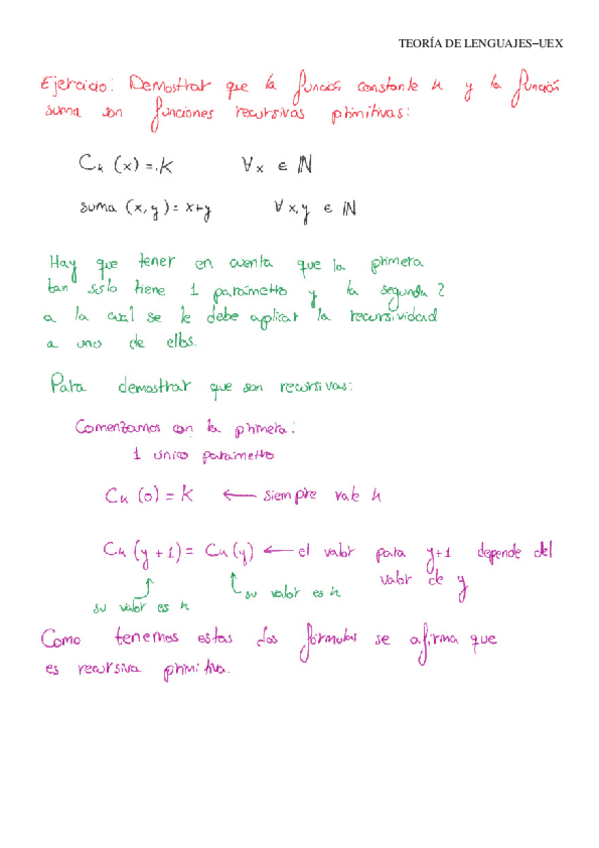 TEORÍA DE LENGUAJES–UEX
Ejercicio: Demostrar que la función constante k y la función
suma son funciones recursivas primitivas:
Ck (x) = k ∀x ∈ ℕ
suma (x, y) = x+y ∀x,y ∈ ℕ
Hay que tener en cuenta que la primera
tan sólo tiene 1 parámetro y la segunda 2
a la cual se le debe aplicar la recursividad
a uno de ellos.
Para demostrar que son recursivas:
Comenzamos con la primera:
1 único parámetro
Ck (0) = k ← siempre vale k
Ck (y + 1) = Ck (y) ← el valor para y+1 depende del
valor de y
su valor es k
su valor es k
Como tenemos estas dos fórmulas se afirma que
es recursiva primitiva.